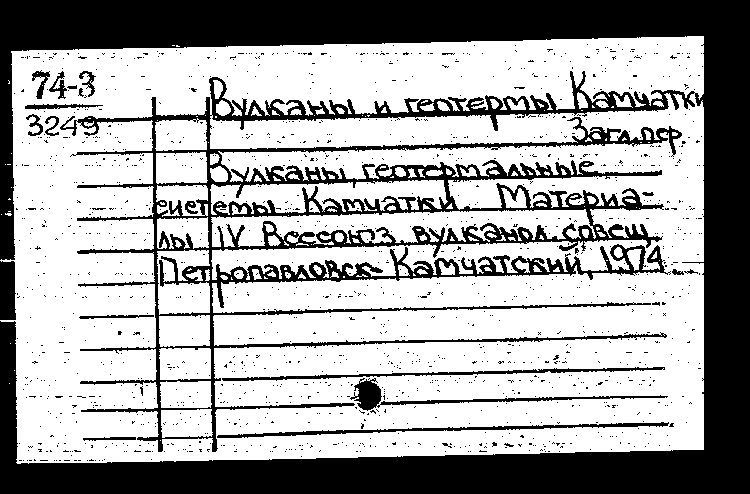 74-3
3249
Вулканы и геотермы Камчатки
Загл. пер.
Вулканы, геотермальные
системы Камчатки. Материа-
лы IV Всесоюз. вулканол. совещ.
Петропавловск-Камчатский, 1974